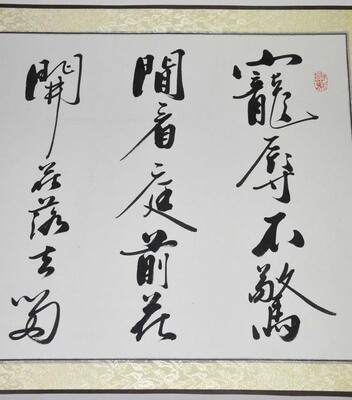 寵辱不驚
閒看庭前花
開花落去留